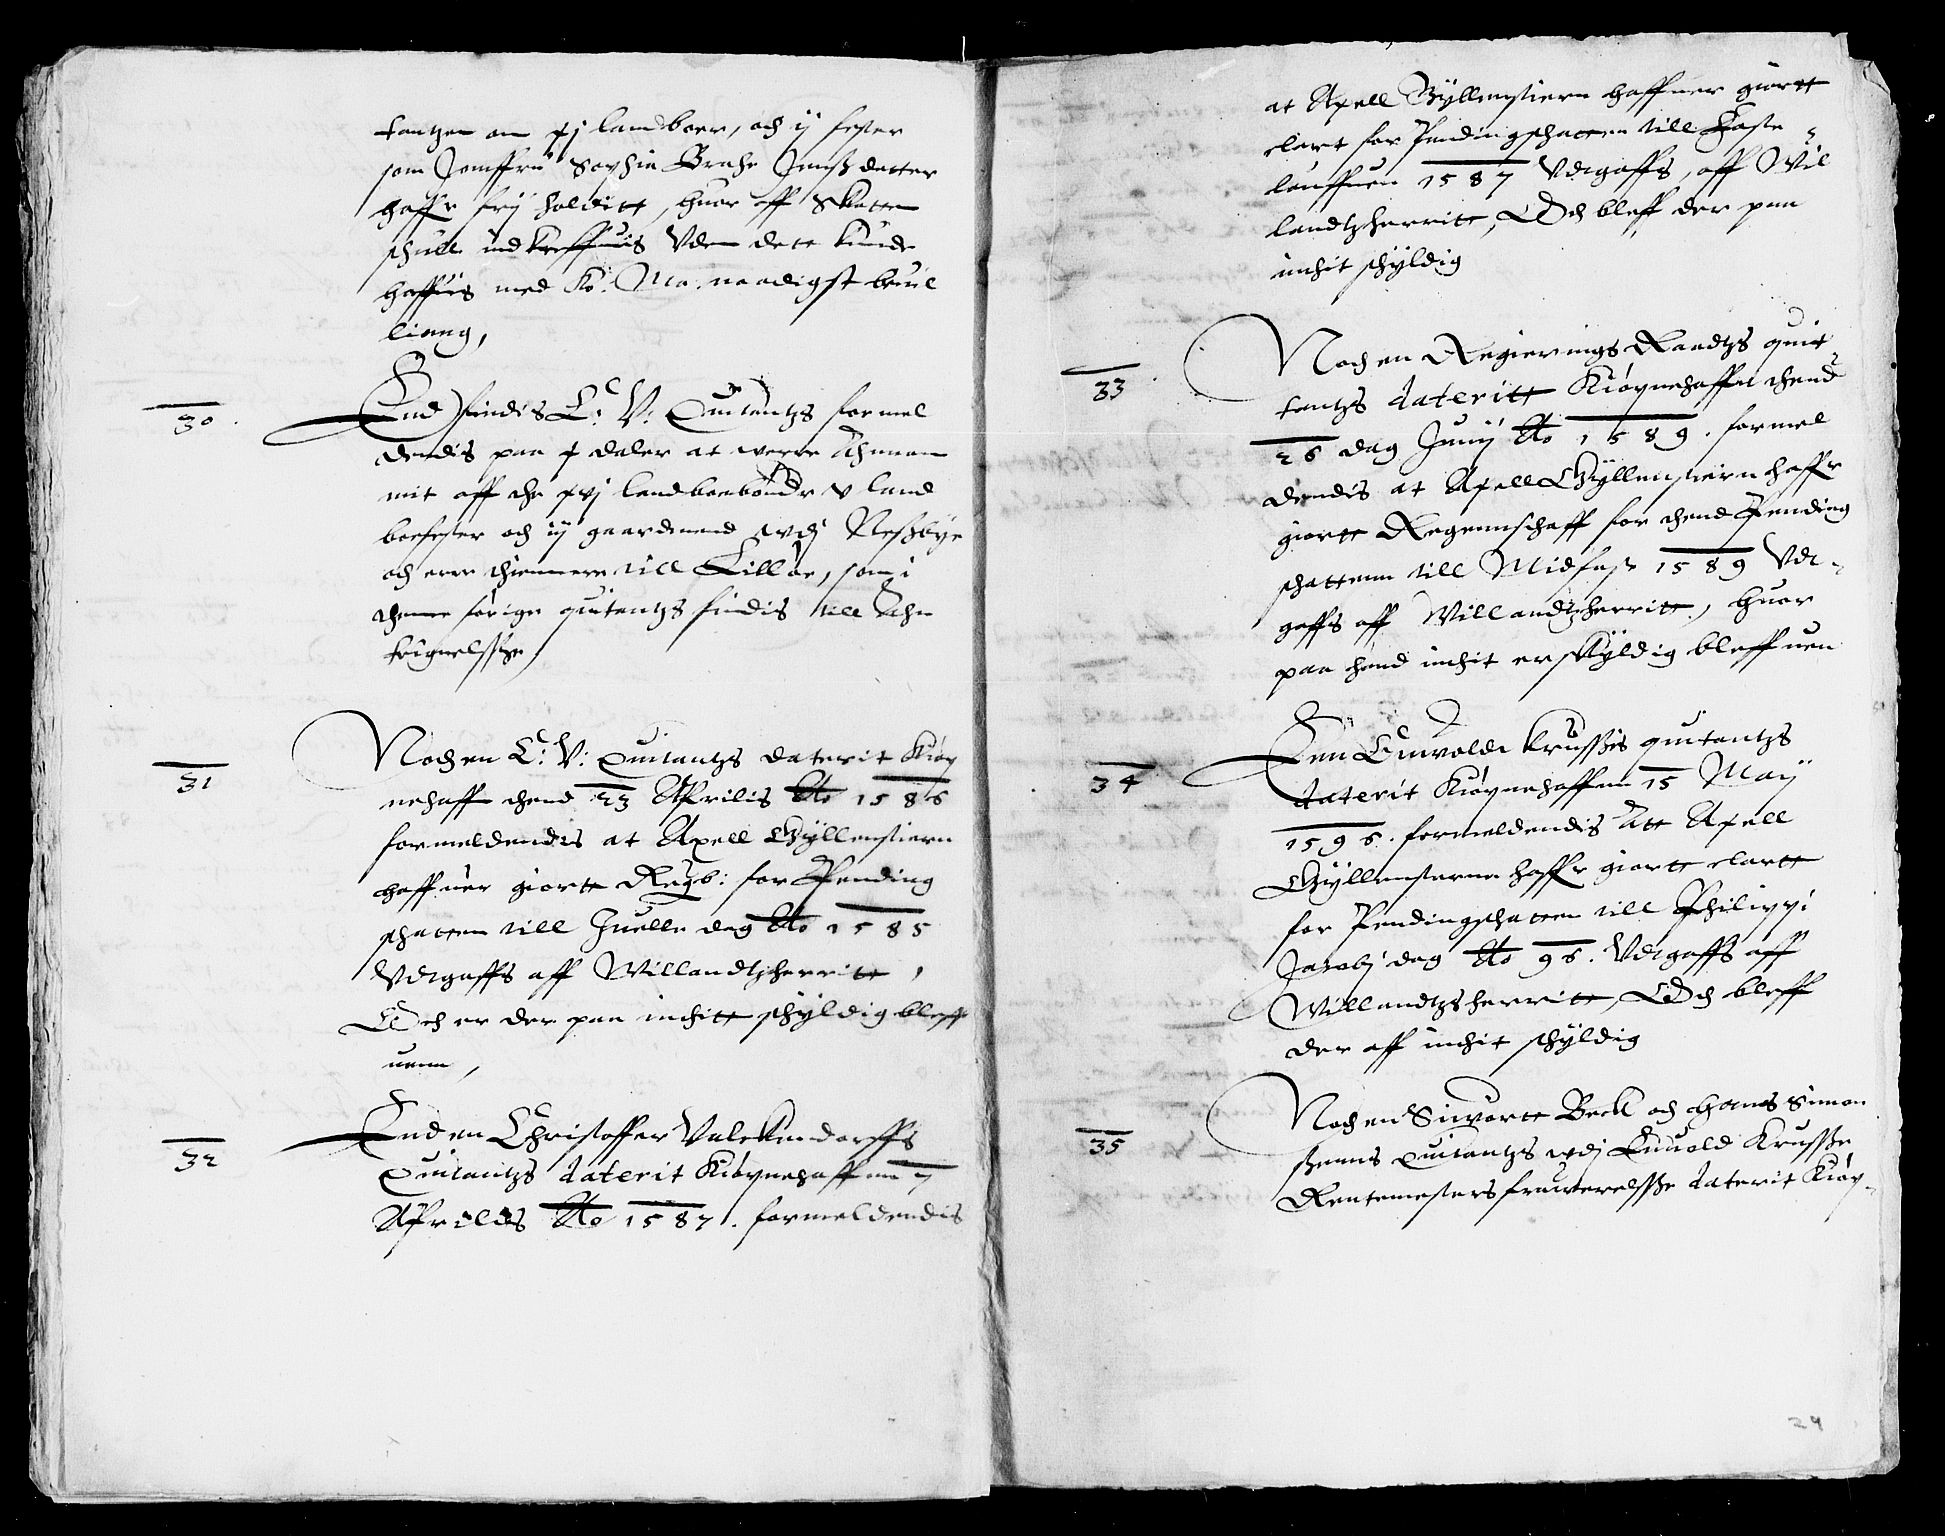 tantzen om xj landboer, och ij fester
som Jomffru Sophia Brahe Jensß datter
haffr frij holditt, huor aff Skatten
schulle indkreffuis Vden dett kunde
haffuis med Ko: Ma: naadigst beuil
lieng,
30
End findis C: V: Quitantzs formel
dendis paa x daler at were Ahnam
mit aff the xvj landboebønder v land
boefester och iij gaardmend wdj Neßbye
och erre thiennere till Lilløe, som i
thenne forige quitantzs findis till Athr
krignelsse,
31
Noch en C: V: Quitantzs daterit Kiøp
nehaffn thend 23 Aprilis Ao 1586
formeldendis at Axell Gyllenstiern
haffuer giortt Regb: for Pending
schatten till Juelle dag Ao 1585
Vdtgaffs aff Willandtzherritt,
Och er der paa inthitt schyldig bleff
uenn,
32
End en Christoffer Valckendorffs
Quitantzs daterit Kiøpnehaffnn 7
Aprilis Ao 1587. formeldendis
at Axell Gyllenstiern haffuer giortt
clart for Pendingschatten till Faste
lauffuen 1587 Vdtgaffs, aff Wil
landtzherritt, Och bleff der paa
inthit schyldig
33
Noch en Regierings Raadtzs quit
tantzs daterit Kiøpnehaffn thend
26 dag Junij Ao 1589. formel
dendis at Axell Gyllenstiern haffr
giortt Regennschaff for thend Pending
schattenn till Midfast 1589 Vdt
gaffs aff Willandtzherritt, huor
paa hand inthit er skyldig bleffuen
34
Een Enwoldt Krussis quitantzs
daterit Kiøpnehaffnn 15 Maij
1596. formeldendis Att Axell
Gyllensterne haffr giortt clartt
for Pendingschatten till Philippi
Jacobj dag Ao 96. Vdtgaffs aff
Willandtzsherritt, Och bleff
der aff inthit schyldig
35
Noch en Siwortt Beck och Hans Simon
ßenns Quitantzs wdj Enuold Krusße
Rentemesters frauerelsße daterit Kiøp
24